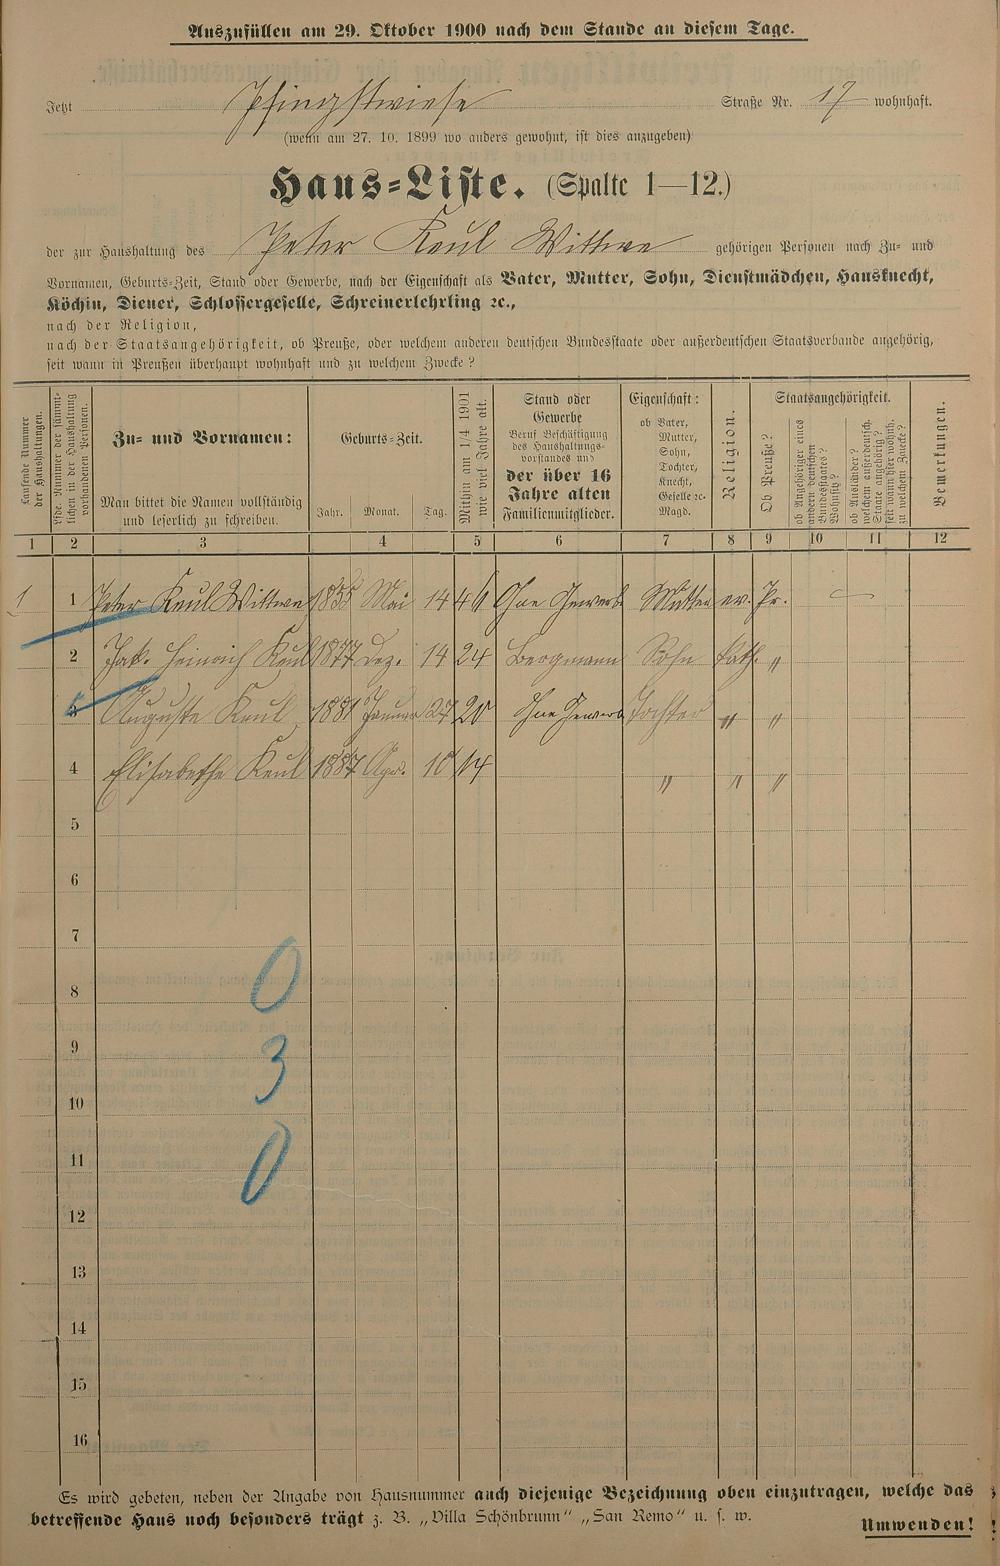 Auszufüllen am 29. Oktober 1900 nach dem Stande an diesem Tage.
Jetzt Pfingstwiese Straße Nr. 17 wohnhaft.
(wenn am 27. 10. 1899 wo anders gewohnt, ist dies anzugeben)
Haus-Liste. (Spalte 1—12.)
der zur Haushaltung des Peter Keul Wittwe gehörigen Personen nach Zu- und
Vornamen, Geburts-Zeit, Stand oder Gewerbe, nach der Eigenschaft als Vater, Mutter, Sohn, Dienstmädchen, Hausknecht,
Köchin, Diener, Schlossergeselle, Schreinerlehrling ꝛc.,
nach der Religion,
nach der Staatsangehörigkeit, ob Preuße, oder welchem anderen deutschen Bundesstaate oder außerdeutschen Staatsverbande angehörig,
seit wann in Preußen überhaupt wohnhaft und zu welchem Zwecke?
Laufende Nummer der Haushaltungen.
Lfde. Nummer der sämmtlichen in der Haushaltung vorhandenen Personen.
Zu- und Vornamen:
Man bittet die Namen vollständig
und leserlich zu schreiben.
Geburts-Zeit.
Jahr. Monat. Tag.
Mithin am 1/4 1901 wie viel Jahre alt.
Stand oder
Gewerbe
Beruf Beschäftigung
des Haushaltungs-
vorstandes und
der über 16
Jahre alten
Familienmitglieder.
Eigenschaft:
ob Vater,
Mutter,
Sohn,
Tochter,
Knecht,
Geselle ꝛc.
Magd.
Religion.
Staatsangehörigkeit.
Ob Preuße?
ob Angehöriger eines andern deutschen Bundesstaates? Wohnsitz?
ob Ausländer? welchem außerdeutsch. Staate angehörig? seit wann hier wohnh. zu welchem Zwecke?
Bemerkungen.
1 2 3 4 5 6 7 8 9 10 11 12
1 1 Peter Keul Wittwe 1855 Mai 14 46 Ohne Gewerb Mutter ev. Pr. —
2 Jak. Heinrich Keul 1877 Dez. 14 24 Bergmann Sohn kath. "
3 Auguste Keul 1881 Januar 27 20 Ohne Gewerb Tochter " "
4 Elisabethe Keul 1887 Apr. 10 14 " " "
5
6
7
0
8
9
3
10
11
0
12
13
14
15
16
Es wird gebeten, neben der Angabe von Hausnummer auch diejenige Bezeichnung oben einzutragen, welche das
betreffende Haus noch besonders trägt z. B. „Villa Schönbrunn" „San Remo" u. s. w.
Umwenden!